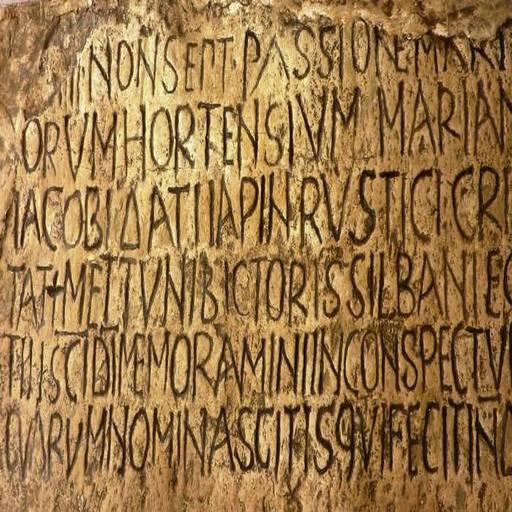 III NON SEPT PASSIONE MART
ORVM HORTENSIVM MARIAN
IACOBI DATI IAPIN RVSTICI CRI
TAT METTVNI BICTORIS SILBANI EG
TII SCI DI MEMORAMINI IN CONSPECTV
QVORVM NOMINA SCITIS QVI FECIT IN D